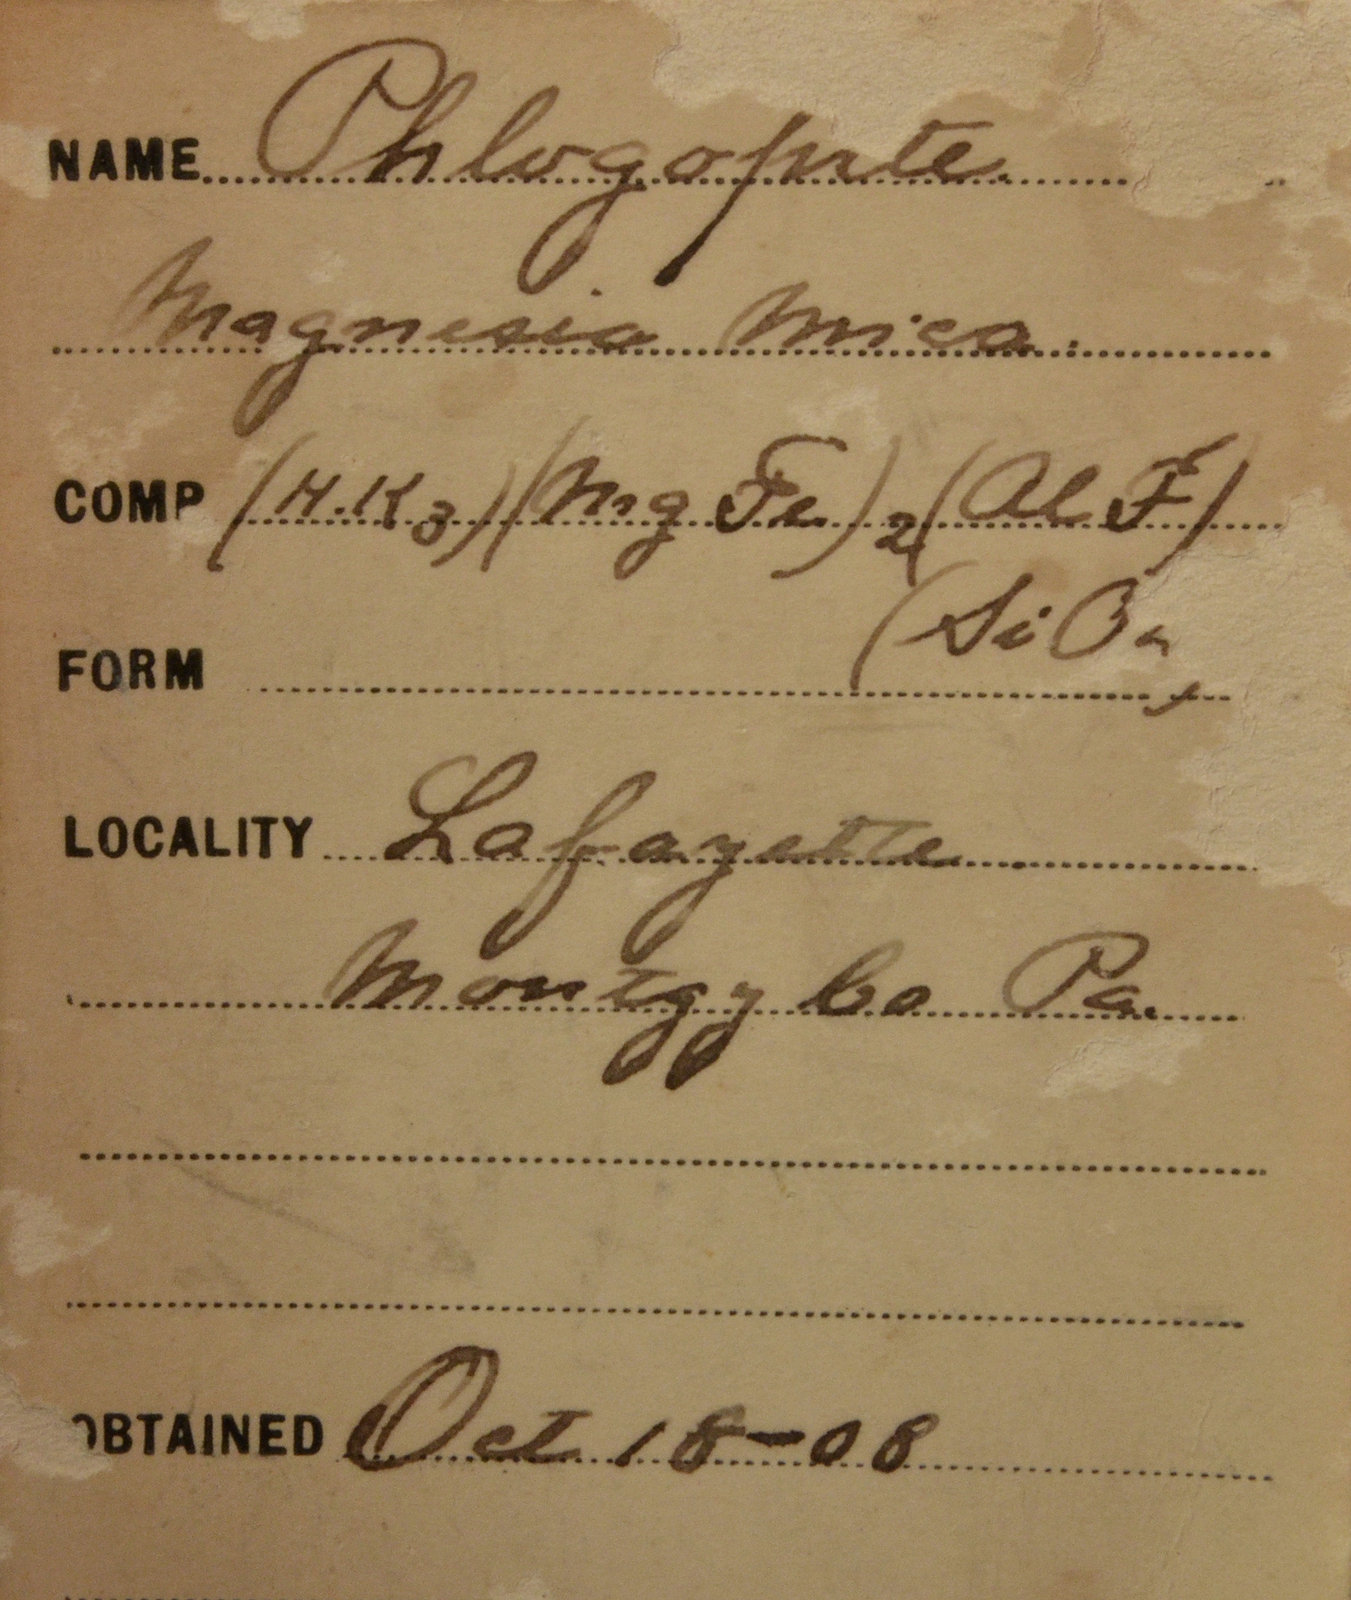 NAME Phlogopite.
Magnesia Mica.
COMP (H.K3)(Mg Fe)2(Al F)
(SiO4
FORM
LOCALITY Lafayette
Montgy Co Pa.
OBTAINED Oct 18-08